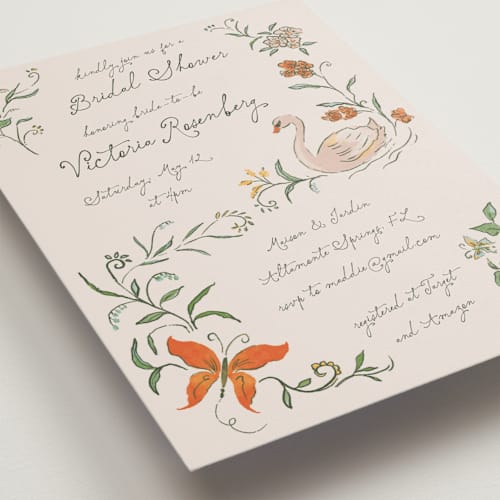 kindly join us for a
Bridal Shower
honoring bride-to-be
Victoria Rosenberg
Saturday, May 12
at 4pm
Maison & Jardin
Altamonte Springs, FL
rsvp to maddie@gmail.com
registered at Target
and Amazon